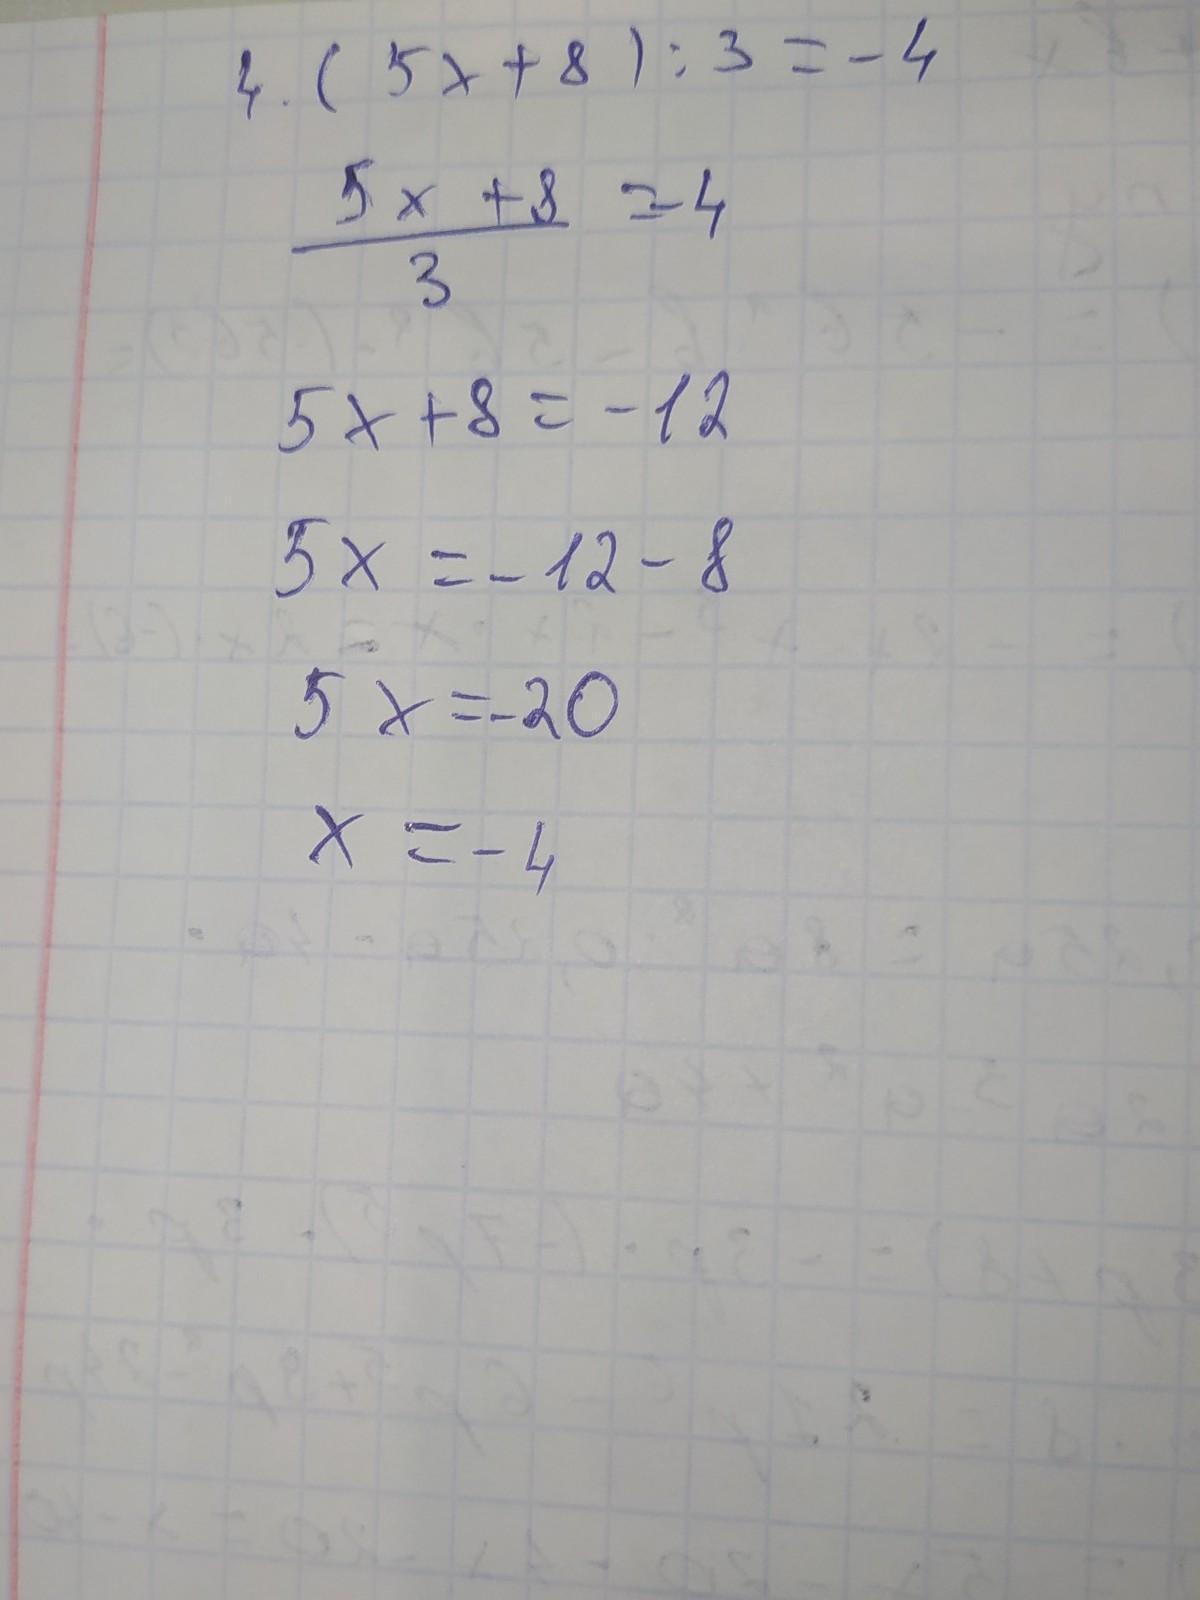 4. (5x+8):3=-4
5x+8
3
=-4
5x+8=-12
5x=-12-8
5x=-20
x=-4